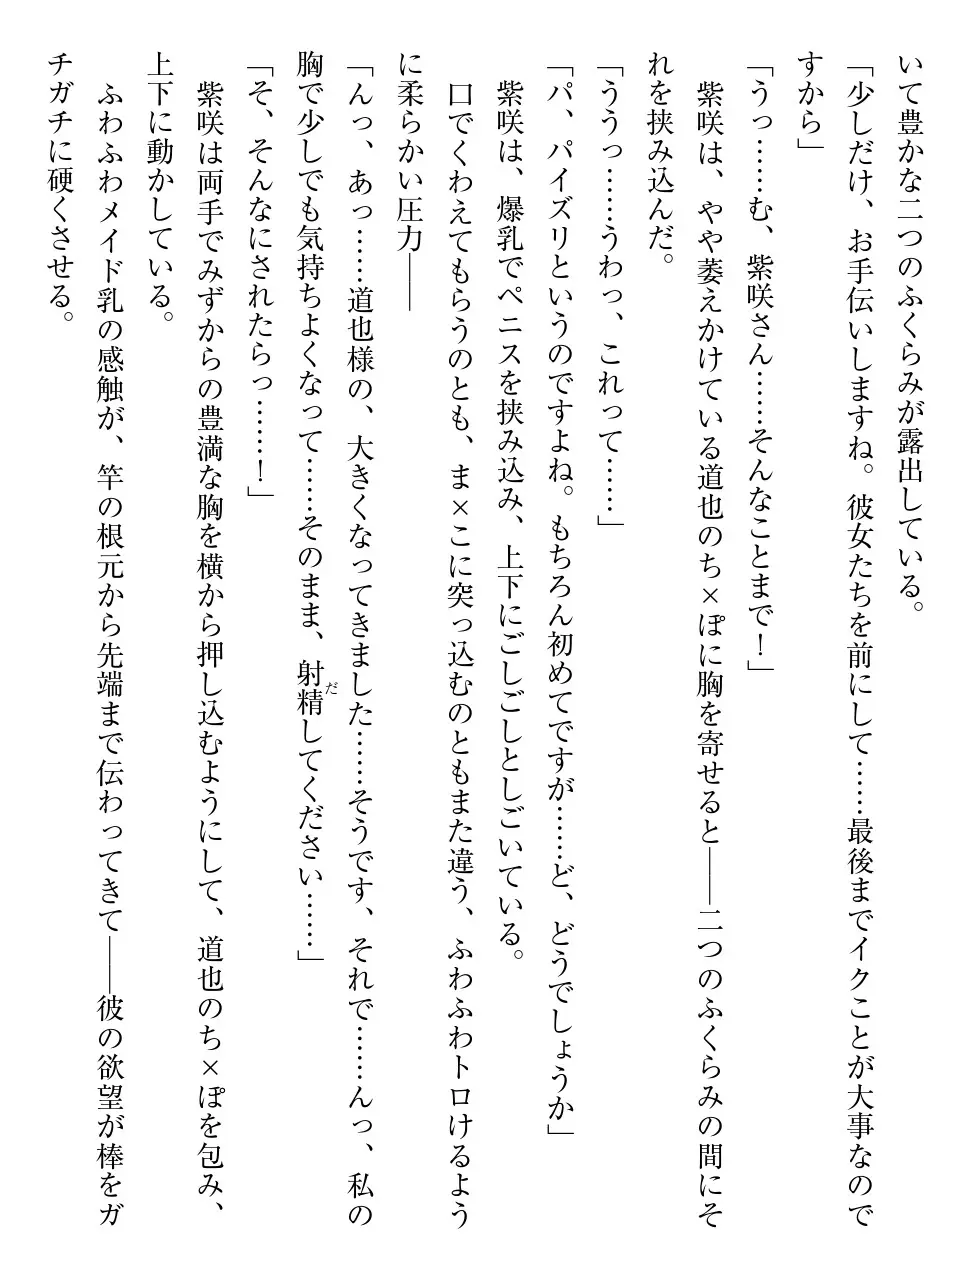 いて豊かな二つのふくらみが露出している。
「少しだけ、お手伝いしますね。彼女たちを前にして……最後までイクことが大事なので
すから」
「うっ……む、紫咲さん……そんなことまで！」
紫咲は、やや萎えかけている道也のち×ぽに胸を寄せると――二つのふくらみの間にそ
れを挟み込んだ。
「ううっ……うわっ、これって……」
「パ、パイズリというのですよね。もちろん初めてですが……ど、どうでしょうか」
紫咲は、爆乳でペニスを挟み込み、上下にごしごしとしごいている。
口でくわえてもらうのとも、ま×こに突っ込むのともまた違う、ふわふわトロけるよう
に柔らかい圧力――
「んっ、あっ……道也様の、大きくなってきました……そうです、それで……んっ、私の
胸で少しでも気持ちよくなって……そのまま、射精だしてください……」
「そ、そんなにされたらっ……！」
紫咲は両手でみずからの豊満な胸を横から押し込むようにして、道也のち×ぽを包み、
上下に動かしている。
ふわふわメイド乳の感触が、竿の根元から先端まで伝わってきて――彼の欲望が棒をガ
チガチに硬くさせる。